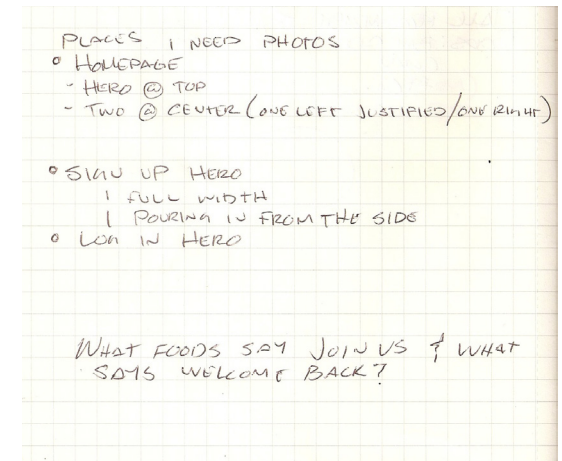 PLACES I NEED PHOTOS
° HOMEPAGE
- HERO @ TOP
- TWO @ CENTER (ONE LEFT JUSTIFIED/ONE RIGHT)
° SIGN UP HERO
1 FULL WIDTH
1 POURING IN FROM THE SIDE
° LOG IN HERO
WHAT FOODS SAY JOIN US & WHAT
SAYS WELCOME BACK?